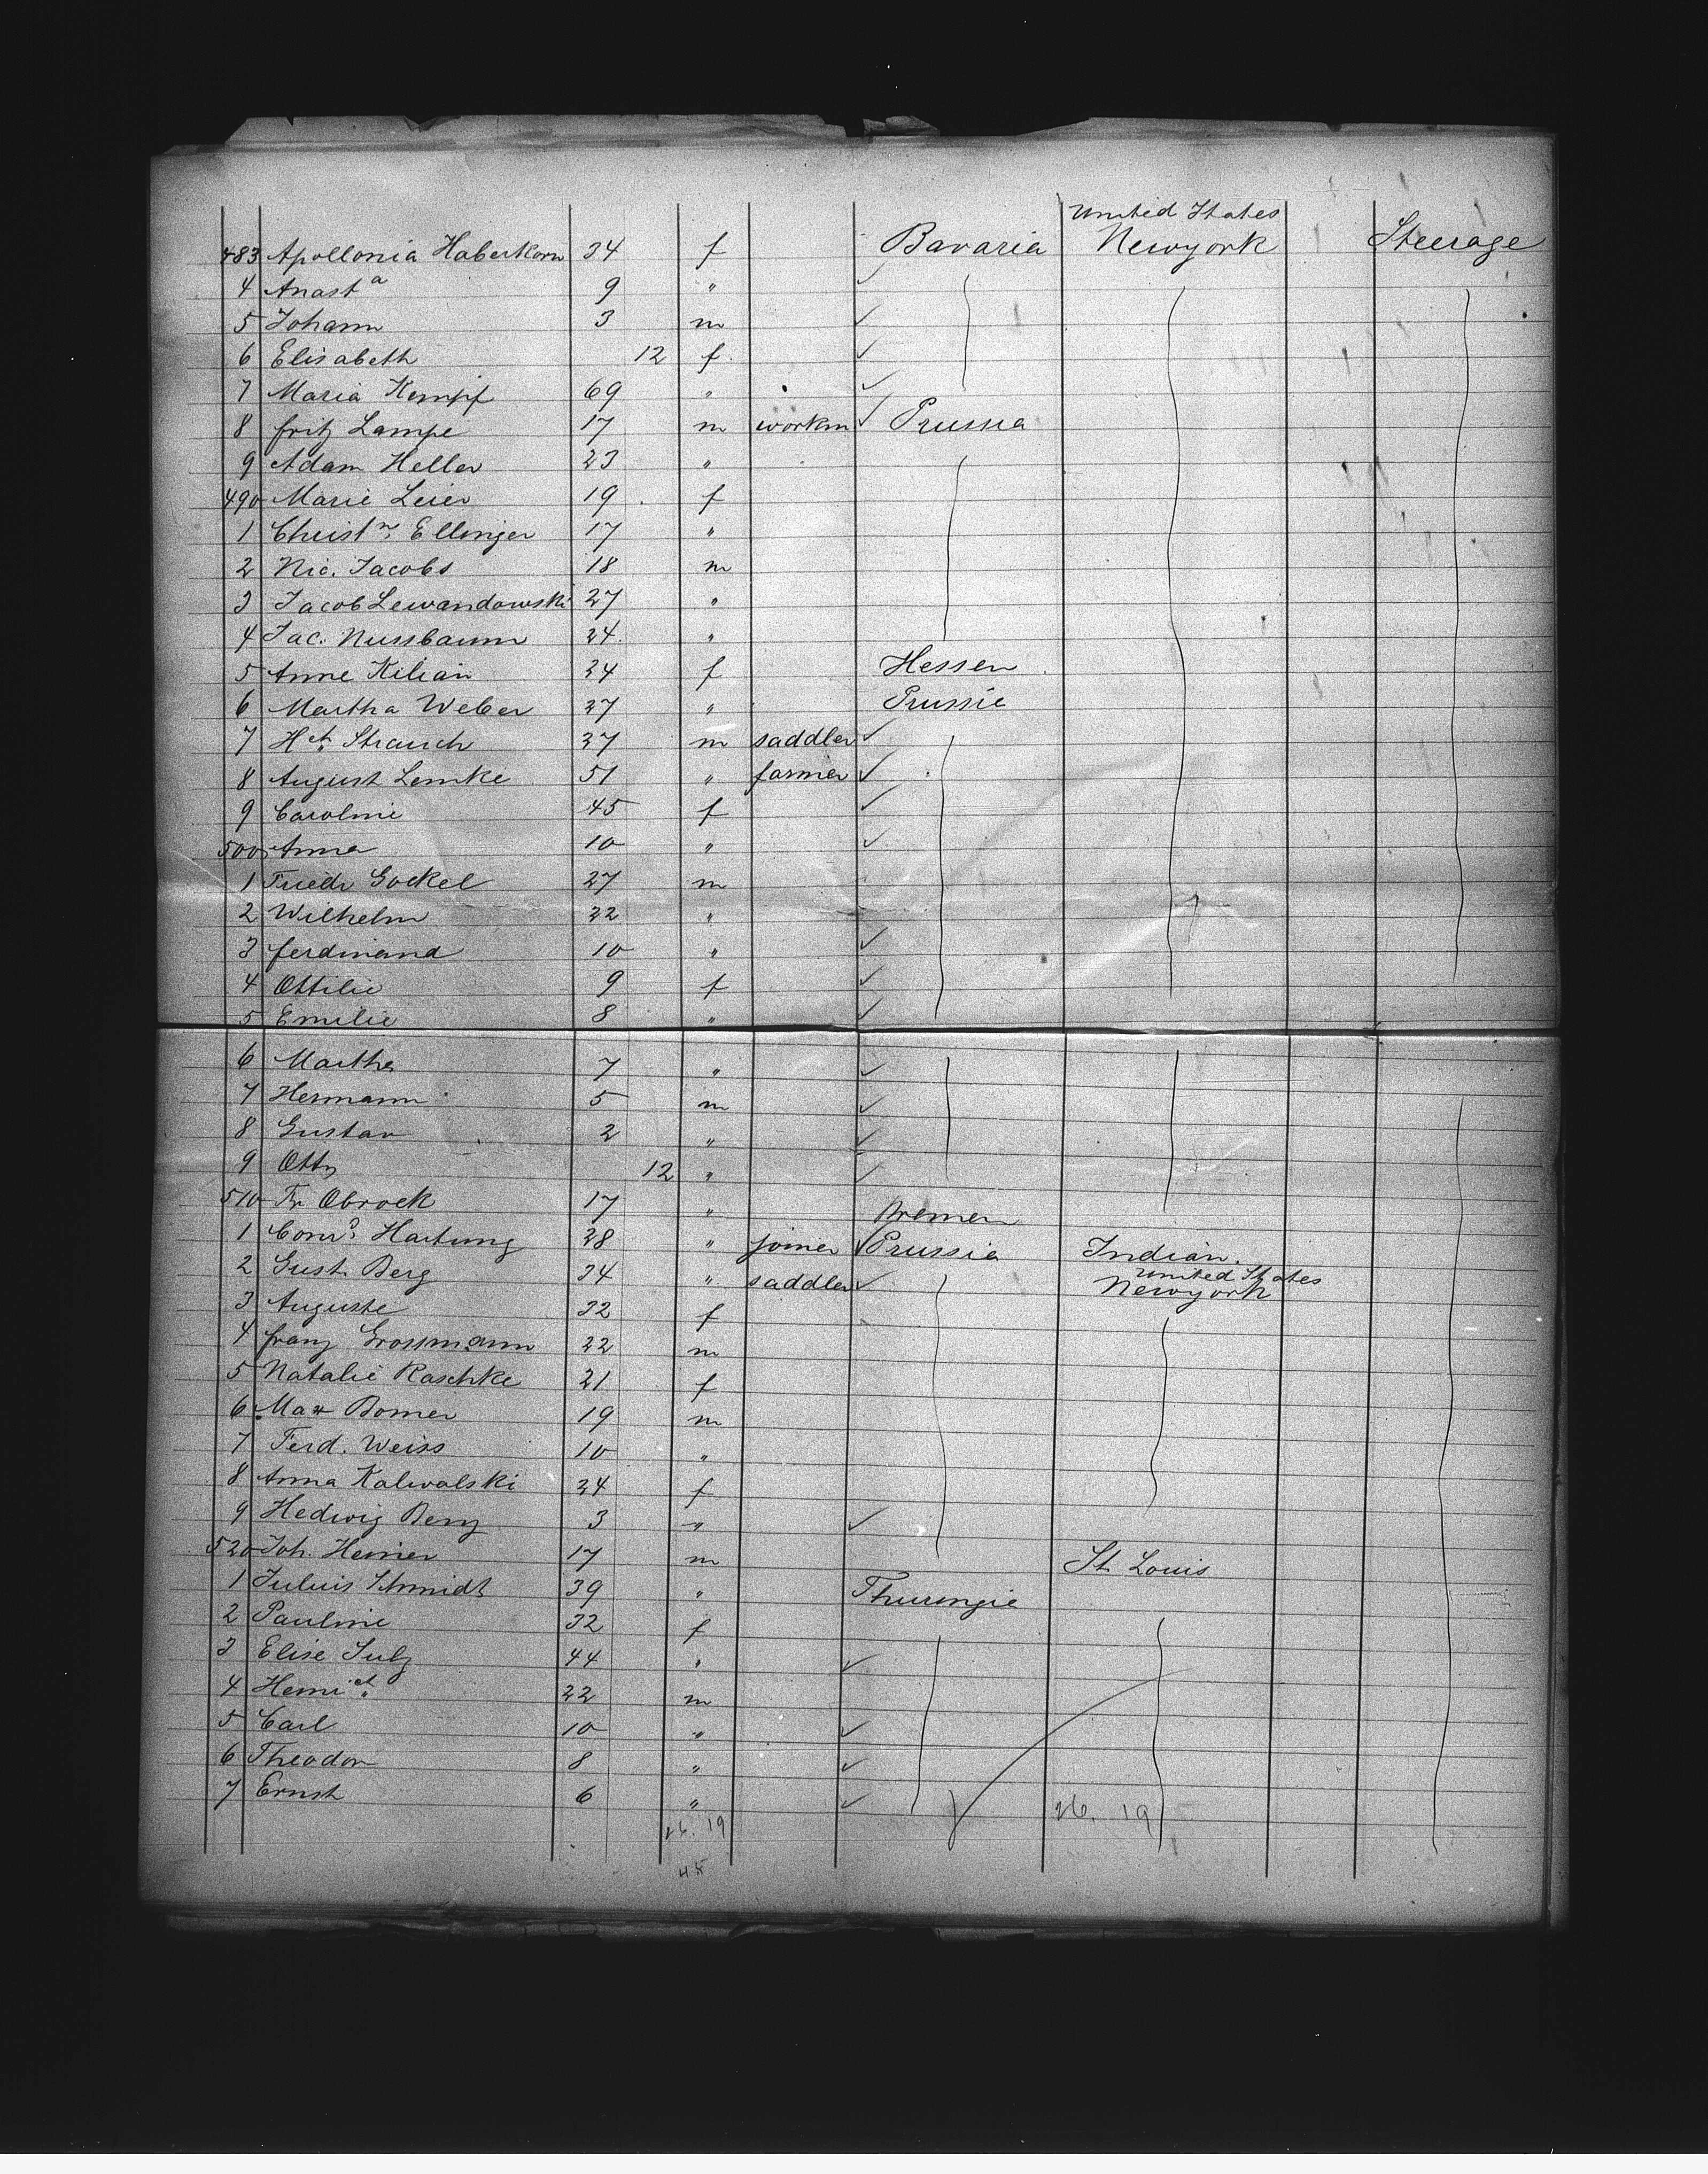 United States
483 Apollonia Haberkorn 34 f Bavaria Newyork Steerage
4 Anast a 9 "
5 Johann 3 m
6 Elisabeth 12 f.
7 Maria Kempf 69 "
8 Fritz Lampe 17 m workm Prussia
9 Adam Heller 23 "
490 Marie Leier 19 f
1 Christ n. Ellinger 17 "
2 Nic. Jacobs 18 m
3 Jacob Lewandowski 27 "
4 Jac. Nussbaum 24. "
5 Anne Kilian 24 f Hessen
6 Martha Weber 27 " Prussie
7 Hch. Strauch 37 m saddler
8 August Lemke 51 " farmer
9 Caroline 45 f
500 Anna 10 "
1 Friedr Gockel 27 m
2 Wilhelm 32 "
3 Ferdinand 10 "
4 Ottilie 9 f
5 Emilie 8 "
6 Martha 7 "
7 Hermann 5 m
8 Gustav 2 "
9 Otto 12 "
510 Fr. Obrock 17 " Bremen
1 Conrd Hartung 28 " joiner Prussia Indian.
2 Gust. Berg 34 " saddler United States Newyork
3 Auguste 32 f
4 Franz Grossmann 22 m
5 Natalie Raschke 21 f
6 Max Bomer 19 m
7 Ferd. Weiss 10 "
8 Anna Kalwalski 24 f
9 Hedwig Berg 3 "
520 Joh. Heinier 17 m St Louis
1 Julius Schmidt 39 " Thuringie
2 Pauline 32 f
3 Elise Sulz 44 "
4 Heinr ch. 22 m
5 Carl 10 "
6 Theodor 8 "
7 Ernst 6 "
26. 19 26. 19
45